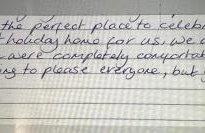 the perfect place to celebr
holiday home for us, we
were completely comfortab
to please everyone, but